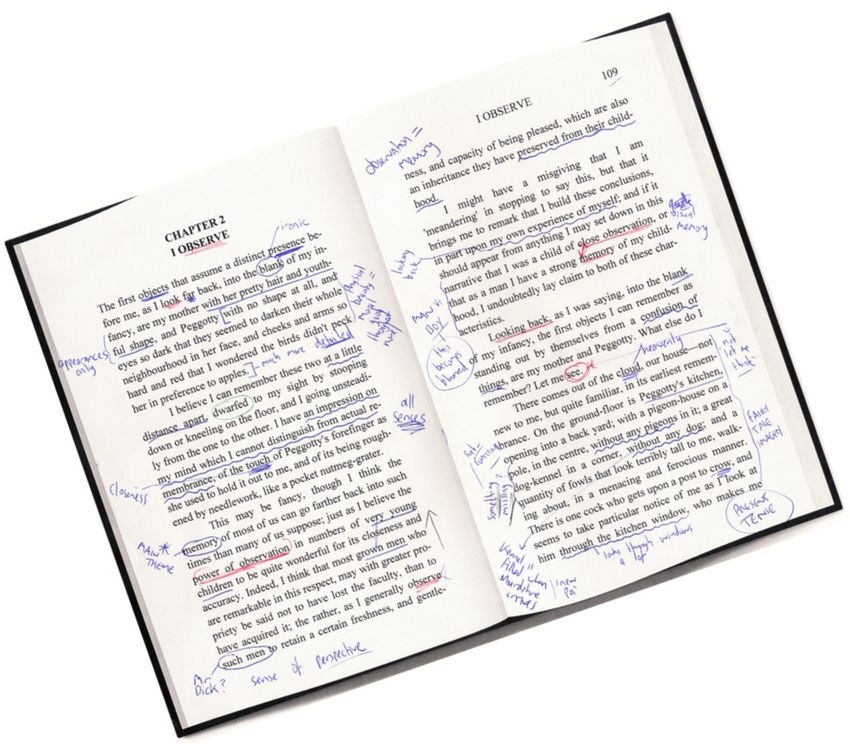 CHAPTER 2
I OBSERVE
ironic
The first objects that assume a distinct presence be-
fore me, as I look far back, into the blank of my in-
fancy, are my mother with her pretty hair and youth-
ful shape, and Peggotty with no shape at all, and
eyes so dark that they seemed to darken their whole
neighbourhood in her face, and cheeks and arms so
hard and red that I wondered the birds didn't peck
her in preference to apples.
much more detailed
appearances
only
I believe I can remember these two at a little
distance apart, dwarfed to my sight by stooping
down or kneeling on the floor, and I going unsteadi-
ly from the one to the other. I have an impression on
my mind which I cannot distinguish from actual re-
membrance, of the touch of Peggotty's forefinger as
she used to hold it out to me, and of its being rough-
ened by needlework, like a pocket nutmeg-grater.
all
senses
Closeness
This may be fancy, though I think the
memory of most of us can go farther back into such
times than many of us suppose; just as I believe the
power of observation in numbers of very young
children to be quite wonderful for its closeness and
accuracy. Indeed, I think that most grown men who
are remarkable in this respect, may with greater pro-
priety be said not to have lost the faculty, than to
have acquired it; the rather, as I generally observe
such men to retain a certain freshness, and gentle-
MAIN*
THEME
Mr
Dick?
sense of perspective
109
I OBSERVE
observation =
memory
ness, and capacity of being pleased, which are also
an inheritance they have preserved from their child-
hood.
I might have a misgiving that I am
'meandering' in stopping to say this, but that it
brings me to remark that I build these conclusions,
in part upon my own experience of myself; and if it
should appear from anything I may set down in this
narrative that I was a child of close observation, or
that as a man I have a strong memory of my child-
hood, I undoubtedly lay claim to both of these char-
acteristics.
memory
looking
back
MAN v.
BOY
this
becomes
blurred
Looking back, as I was saying, into the blank
of my infancy, the first objects I can remember as
standing out by themselves from a confusion of
things, are my mother and Peggotty. What else do I
remember? Let me see.
There comes out of the cloud, our house—not
new to me, but quite familiar, in its earliest remem-
brance. On the ground-floor is Peggotty's kitchen,
opening into a back yard; with a pigeon-house on a
pole, in the centre, without any pigeons in it; a great
dog-kennel in a corner, without any dog; and a
quantity of fowls that look terribly tall to me, walk-
ing about, in a menacing and ferocious manner.
There is one cock who gets upon a post to crow, and
seems to take particular notice of me as I look at
him through the kitchen window, who makes me
heavenly
something
missing
FAIRY
TALE
IMAGERY
PRESENT
TENSE
looks through windows
a lot
Kennel is
filled when
Murdstone
arrives